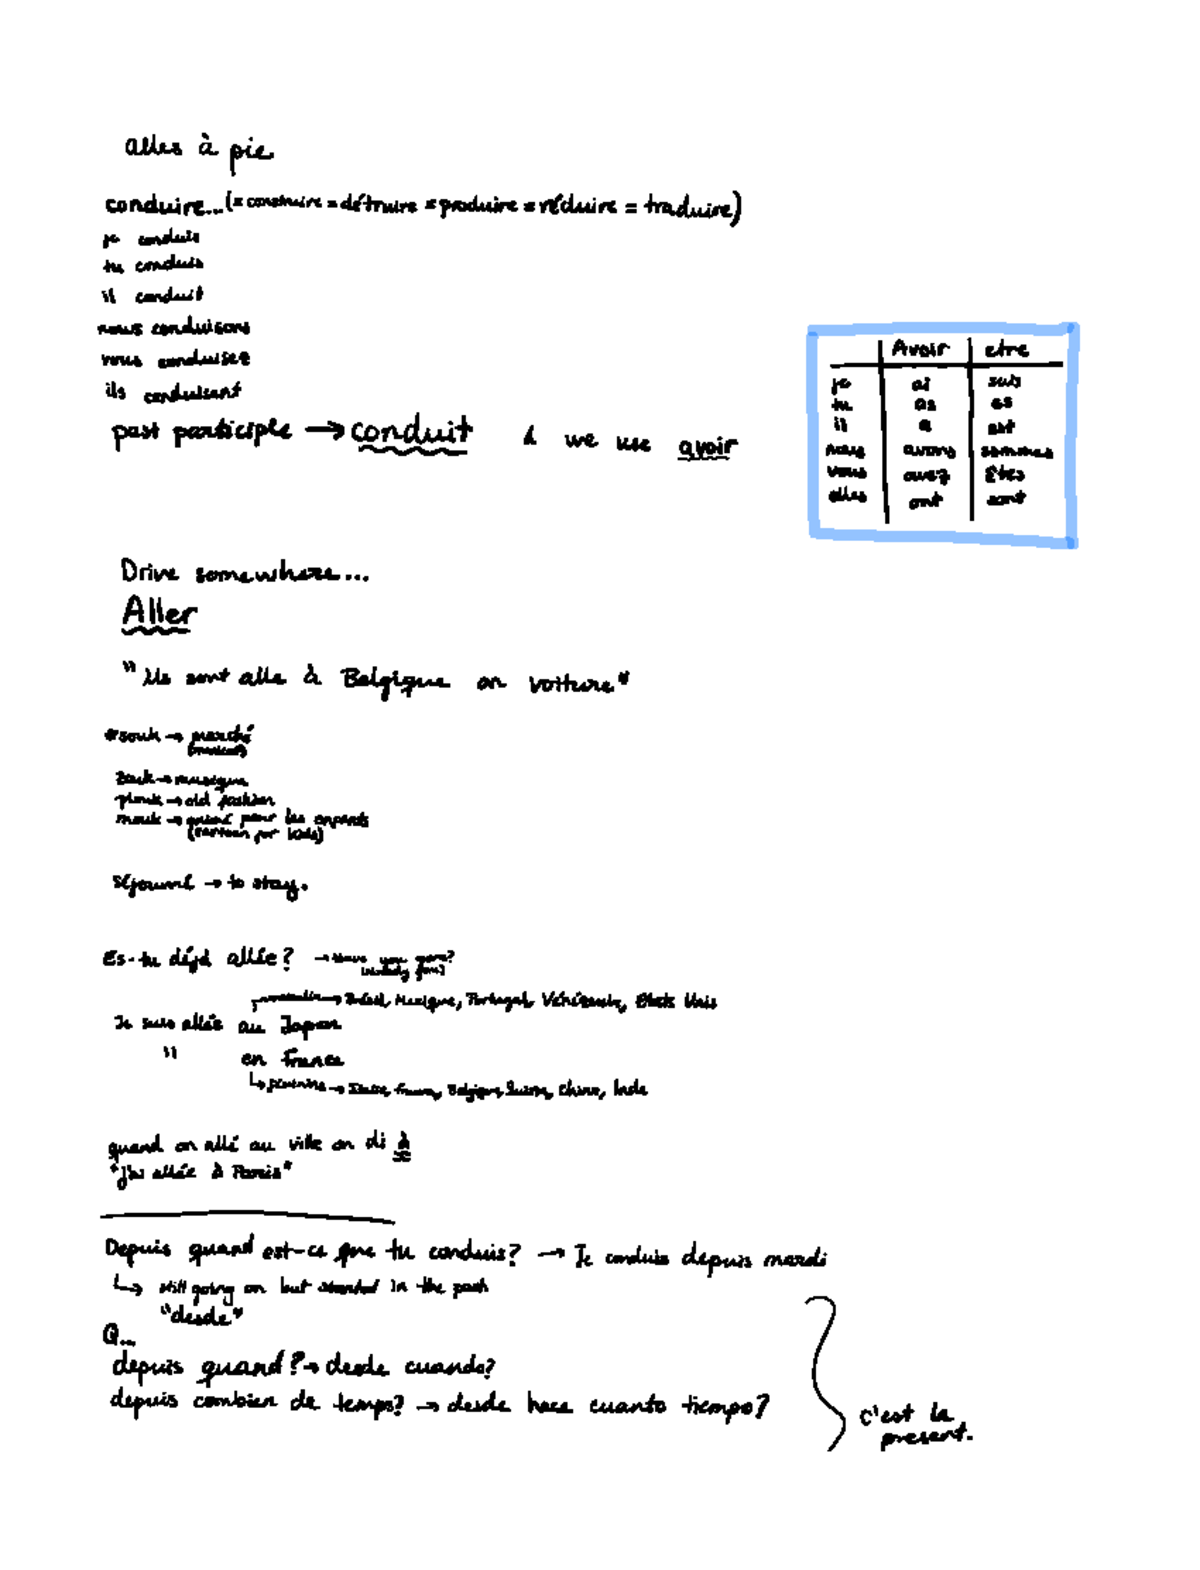 alles à pie
conduire...(= construire = détruire = produire = réduire = traduire)
je conduis
tu conduis
il conduit
nous conduisons
vous conduisez
ils conduisent
past participle → conduit & we use avoir
Avoir etre
je ai suis
tu as es
il a est
nous avons sommes
vous avez êtes
elles ont sont
Drive somewhere...
Aller
"Ils sont alle à Belgique en voiture"
*souk → marché
zouk → musique
plouk → old fashion
mouk → pour les enfants
(cartoon for kids)
séjourné → to stay.
Es-tu déjà allée? → Have you gone?
→ Brésil, Mexique, Portugal, Vénézuela, États Unis
Je suis allée au Japon
" en France
↳ féminine → Suisse, France, Belgique, Chine, Inde
quand on allé au ville on di à
"j'ai allée à Paris"
Depuis quand est-ce que tu conduis? → Je conduis depuis mardi
↳ still going on but started in the past
"desde"
Q...
depuis quand? → desde cuando?
depuis combien de temps? → desde hace cuanto tiempo?
c'est la
present.